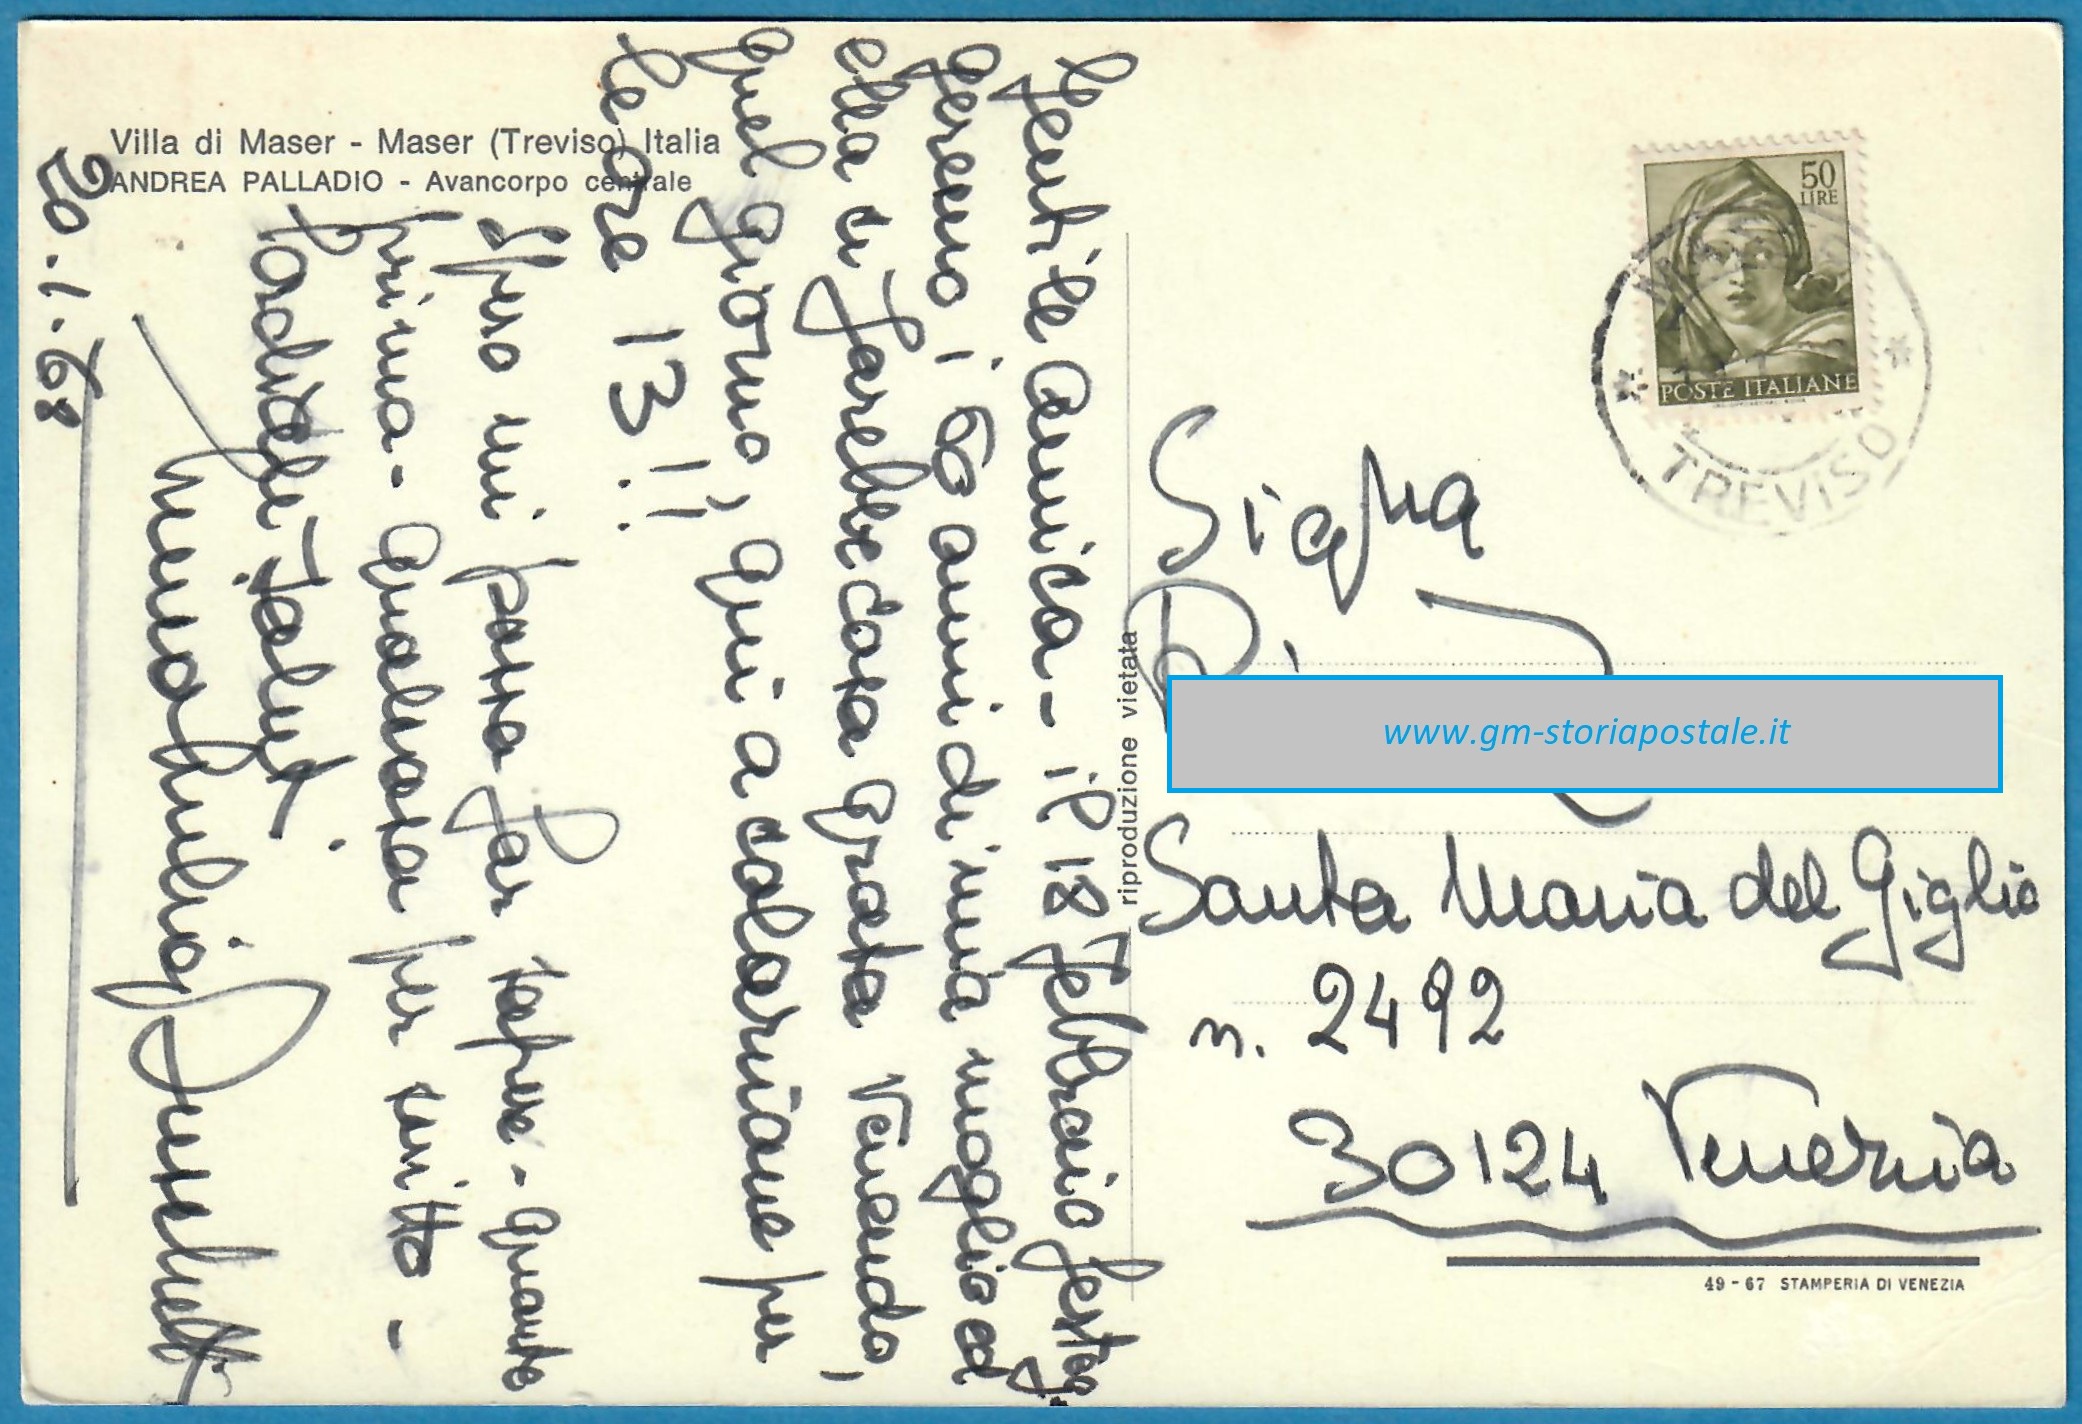 Villa di Maser - Maser (Treviso) Italia
ANDREA PALLADIO - Avancorpo centrale
Gentile amica - il 18 Febbraio festeg.
geremo i 60 anni di mia moglie ed
ella Le sarebbe cosa grata Venendo,
quel giorno, qui a colazione per
le ore 13!!
Spero mi possa far sapere - quanto
prima - qualcosa per scritto -
Cordiali Saluti.
20.1.68
riproduzione vietata
50
LIRE
POSTE ITALIANE
MASER
TREVISO
Sigra
www.gm-storiapostale.it
Santa Maria del Giglio
n. 2492
30124 Venezia
49 - 67 STAMPERIA DI VENEZIA